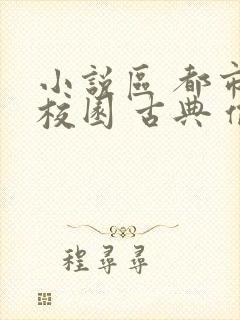 小說區 都市
校園 古典
程尋尋